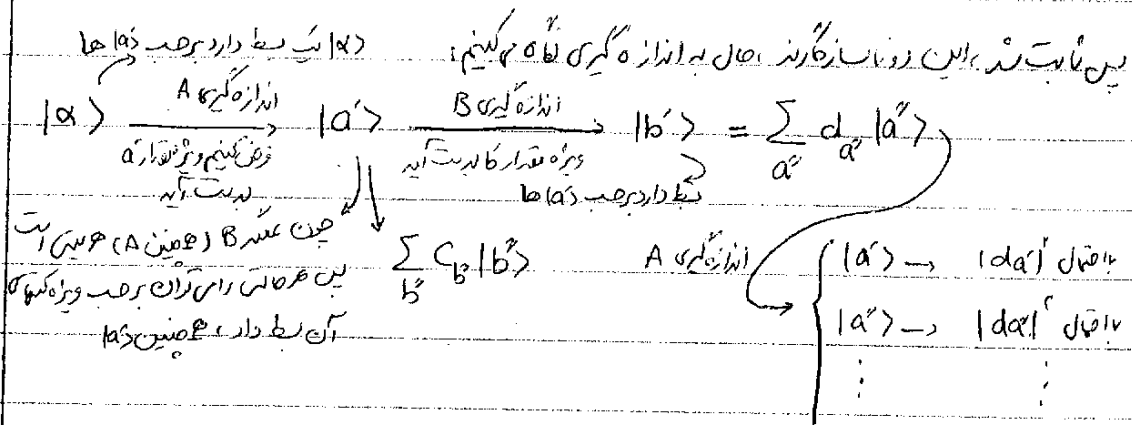 پس ثابت شد، این دو ناسازگارند، حال به اندازه گیری نگاه می کنیم:
|α> یک بسط دارد برحسب |a'> ها
|α> اندازه گیری A → |a'> اندازه گیری B → |b'> = Σ_{a''} d_{a''} |a''>
فرض کنیم ویژه مقدار a' بدست آید
ویژه مقدار b' بدست آید
بسط دارد برحسب |a'> ها
چون عملگر B (همچنین A) هرمیتی است
پس هر حالتی را می توان برحسب ویژه کتهای
آن بسط داد، همچنین |a'>
Σ_{b''} C_{b''} |b''>
اندازه گیری A
|a'> → |da'|² با احتمال
|a''> → |da''|² با احتمال
⋮ ⋮